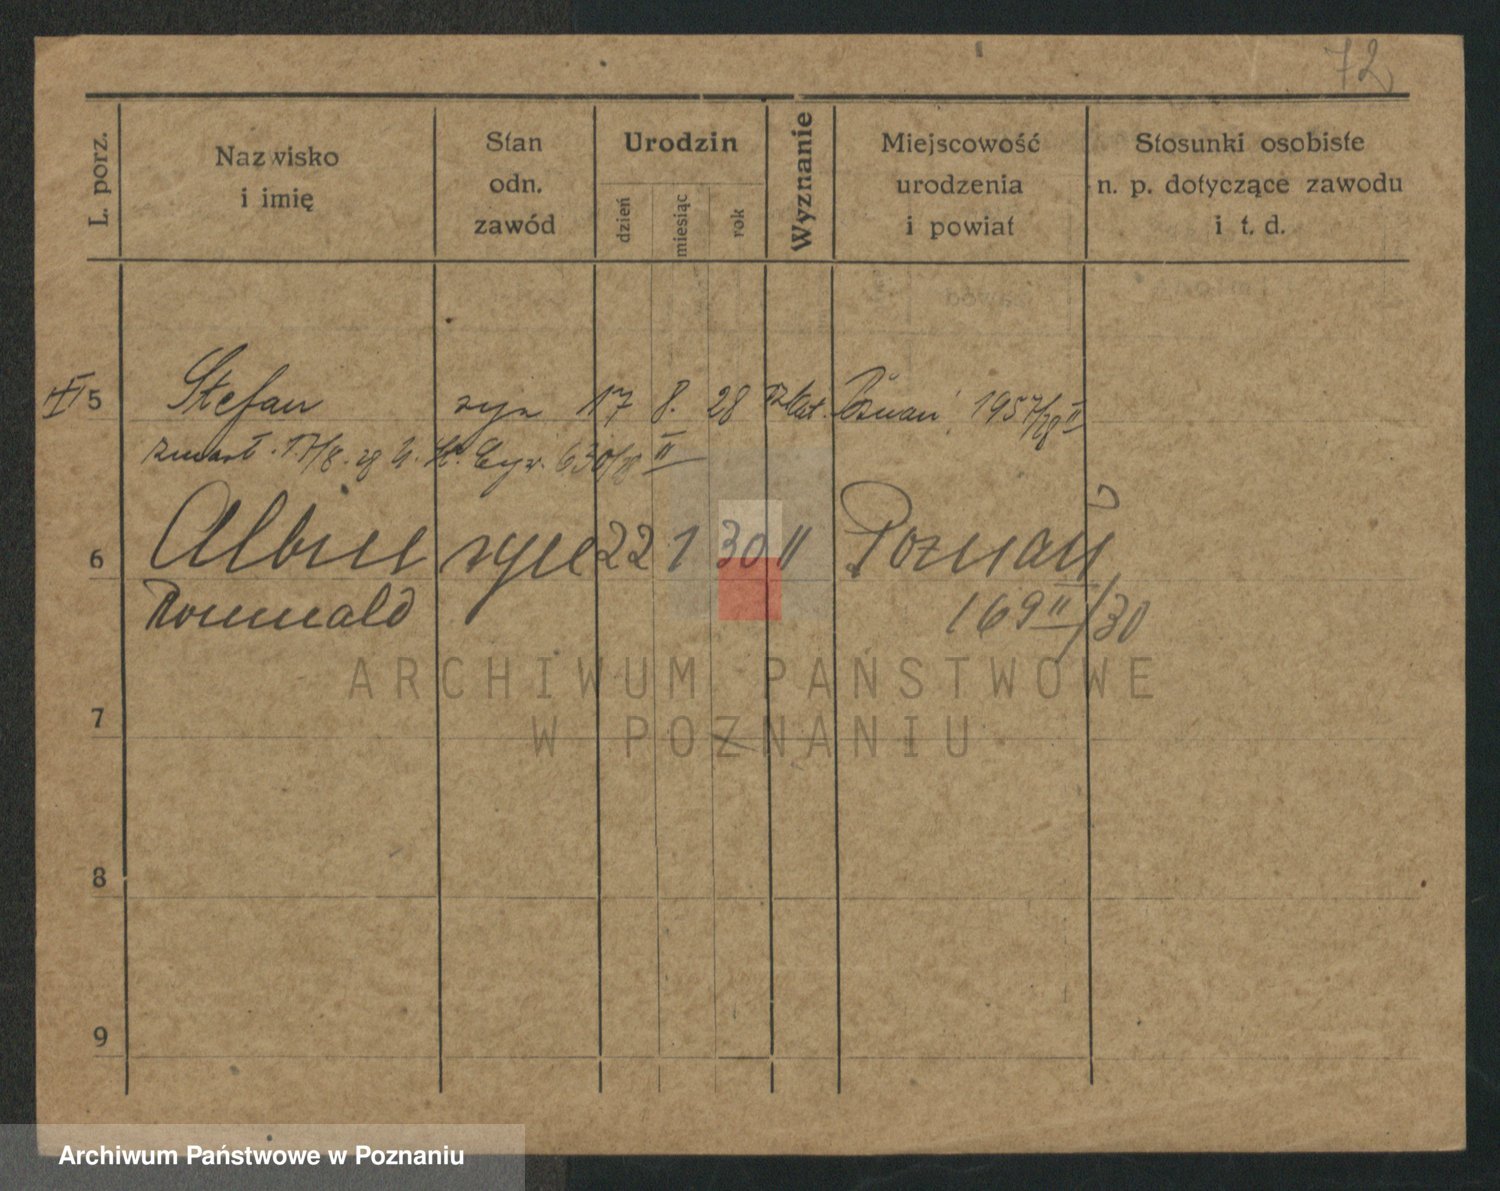 72
L. porz.
Nazwisko
i imię
Stan
odn.
zawód
Urodzin
dzień
miesiąc
rok
Wyznanie
Miejscowość
urodzenia
i powiat
Stosunki osobiste
n. p. dotyczące zawodu
i t. d.
5 Stefan syn 17 8. 28 Rz kat. Poznań, 1957/28 II
zmarł. 17/8. 28 630/28 II
6 Albin syn 22 1 30 " Poznań
Romuald 169 II/30
ARCHIWUM PAŃSTWOWE
W POZNANIU
7
8
9
Archiwum Państwowe w Poznaniu